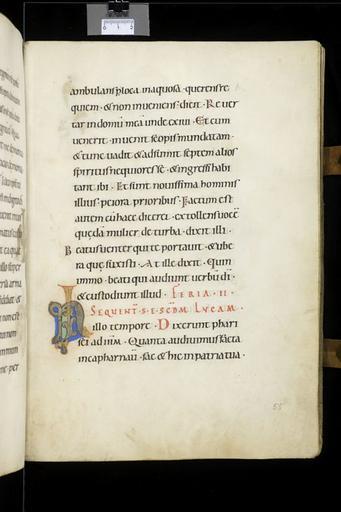 ambulans p loca inaquosa · querens re
quiem · & non inveniens · dicit · Rever
tar in domū meā unde exivi · Et cum
venerit · invenit scopis mundatam ·
& tunc vadit & adsumit septem alios
spiritus nequiores se · & ingressi habi
tant ibi · Et sunt novissima hominis
illius · peiora prioribus · Factum est
autem cū hæc diceret · extollens vocē
quędā mulier de turba · dixit illi ·
Beatus venter qui te portavit · & ube
ra quę suxisti · At ille dixit · Quin
immo · beati qui audiunt verbū dī ·
& custodiunt illud · FERIA · II ·
SEQUENT · S · E · SCDM LUCAM ·
In illo tempore · Dixerunt phari
sei ad ihm · Quanta audivimus facta
in capharnaū · fac & hic in patria tua ·
55